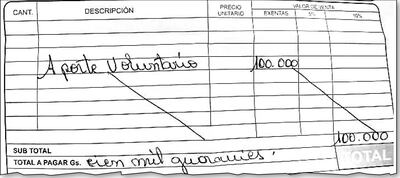 CANT. DESCRIPCIÓN PRECIO UNITARIO VALOR DE VENTA
EXENTAS 5% 10%
Aporte Voluntario 100.000
SUB TOTAL 100.000
TOTAL A PAGAR Gs. cien mil guaraníes. TOTAL